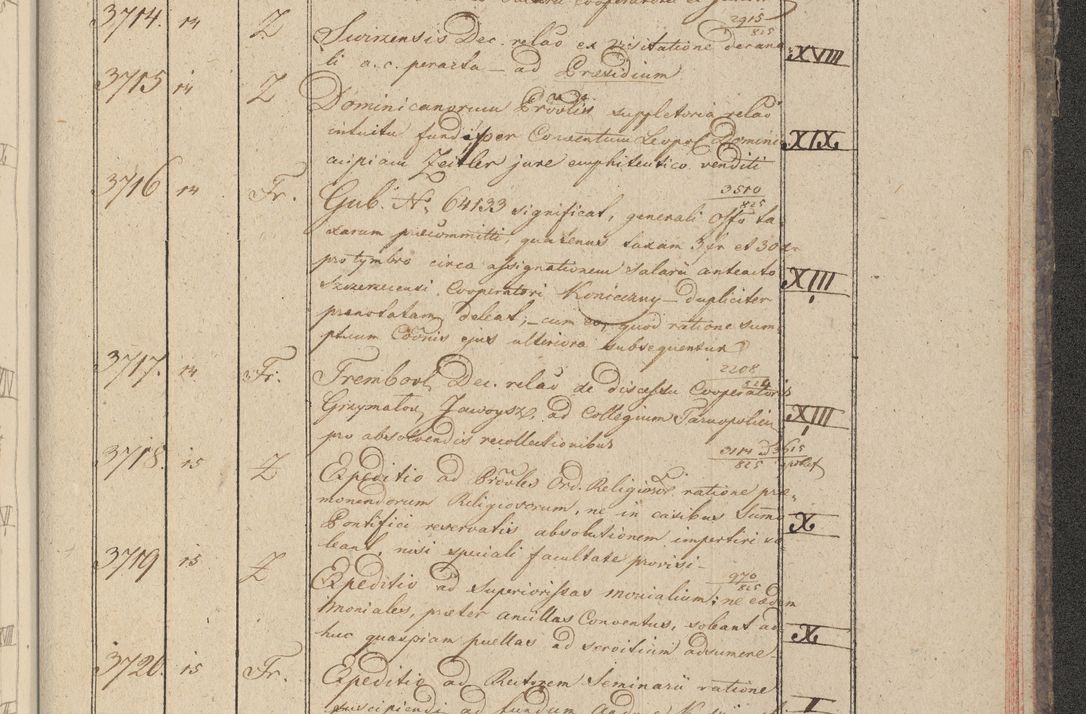 3714. 14 Z Swirzensis Dec. relaõ ex visitatione decana 2915/825
li a. c. peracta — ad Præsidium XVIII
3715 14 Z Dominicanorum Provlis suppletoria relaõ
intuitu fundi per Conventum Leopol Domini XIX
cuipiam Zeitler jure emphiteutico venditi
3716 14 Fr. Gub. N. 64133 significat, generali Offo ta 3510/825
xarum præcommitti, quatenus taxam 3 fr et 30 xr
pro tymbro circa assignationem salarii anteacto XIII
Szczerzecensi Cooperatori Koniczny — dupliciter
prænotatam deleat; — cum eo, quod ratione sum
ptuum Coõnis ejus ulteriora subsequentur
3717. 14 Fr. Trembovl Dec. relaõ de discessu Cooperatoris 2208/824
Grzymalov Jaworysz. ad Collegium Tarnopolien XIII
pro absolvendis recollectionibus
3718. 15 Z Expeditio ad Provles Ord. Religiosor ratione præ- 3114/825
monendorum Religiosorum, ne in casibus Summo X
Pontifici reservatis absolutionem impertiri va
leant, nisi speciali facultate provisi —
3719 15 Z Expeditio ad Superiorissas monialium; ne eædem 970/825
moniales, præter ancillas Conventus, soleant ad X
huc quaspiam puellas ad servitium adsumere —
3720. 15 Fr. Expeditio ad Rectorem Seminarii ratione
suscipiendi ad fundum I